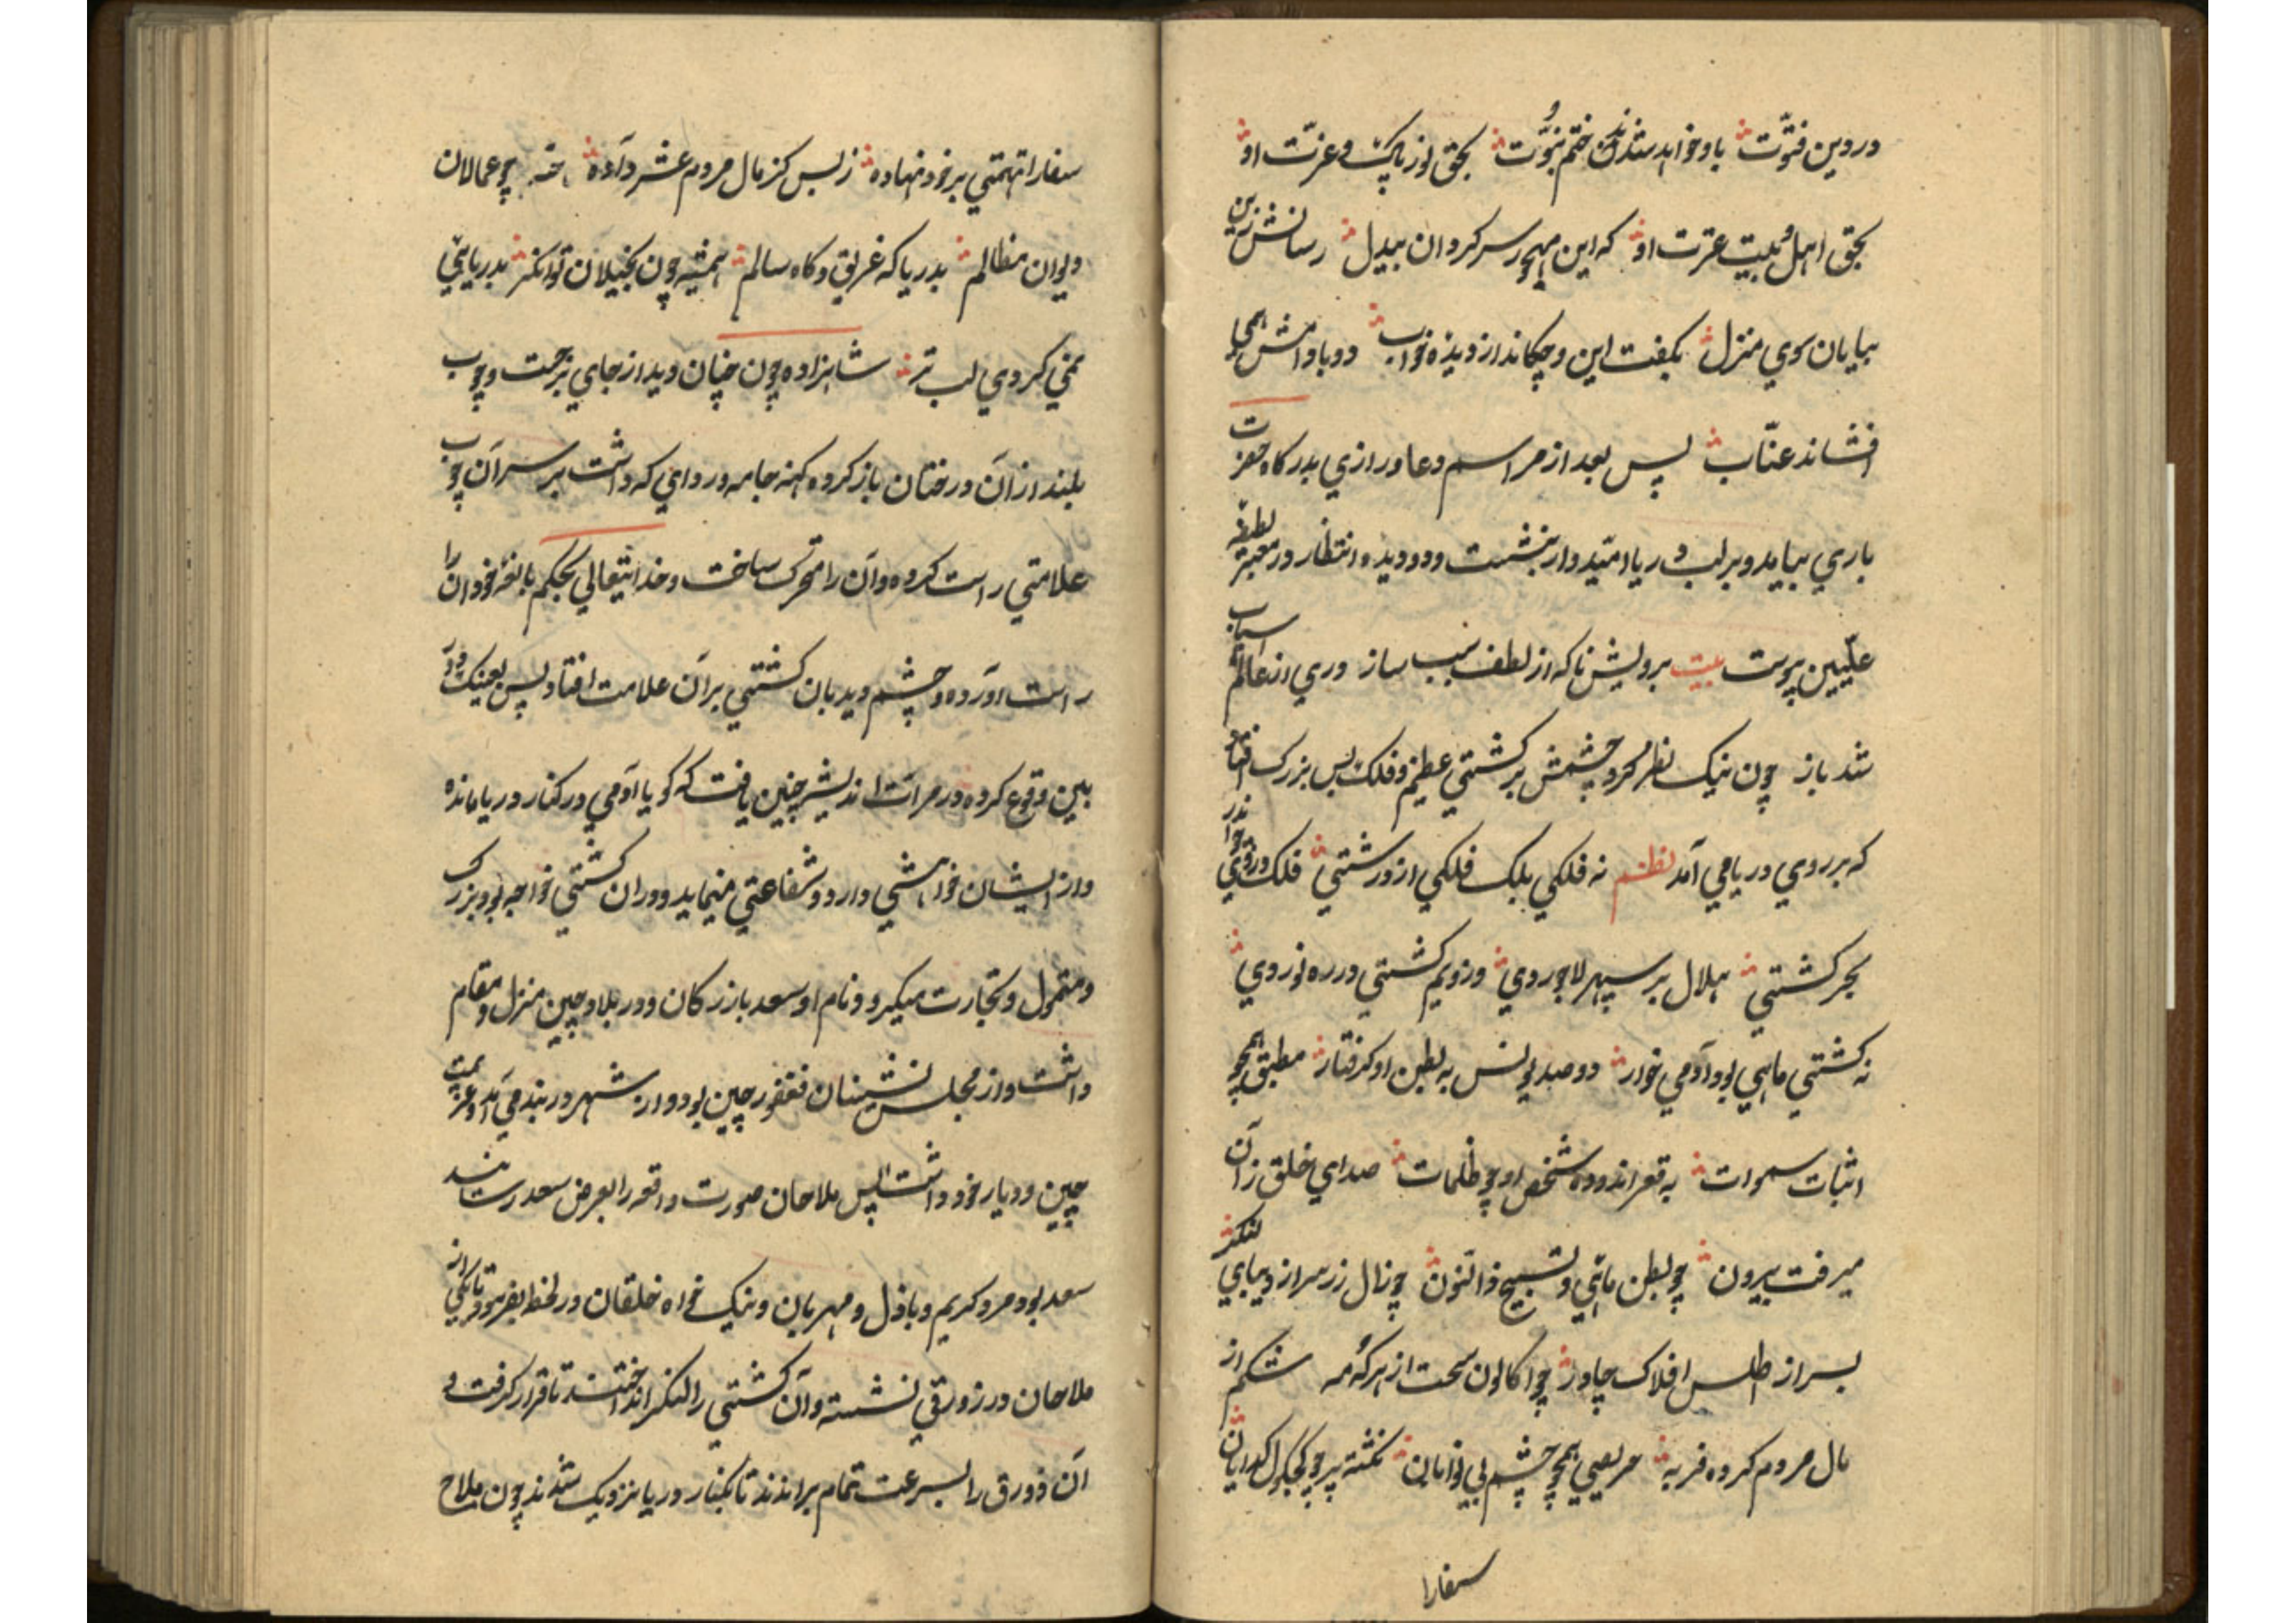 در دین فتوّت باو خواهد شدن ختم نبوّت بحق نور پاک و عزّت او
بحق اهل بیت عترت او که این مهجور سرکردان بیدل رسانش زین
بیابان سوی منزل بگفت این و چکاند از دیده خوناب دو بادامش همی
افشاند عنّاب پس بعد از مراسم دعا و رازی بدرکاه حضرت
باری بیامد و بر لب دریا امّیدوار بنشست و دو دیده انتظار در
علّیین پیوست بیت برویش ناکه از لطف سبب ساز دری از عالم اسباب
شد باز چون نیک نظر کرد چشمش بر کشتی عظیم و فلک بس بزرک افتاد
که بر روی دریا می آمد نظم نه فلکی بلک فلکی از درشتی فلک زورقی
بحر کشتی هلال بر سپهر لاجوردی در و نیم کشتی در ره نوردی
نه کشتی ماهی بود آدمی خوار دو صد یونس به بطن او کرفتار مطبق همچو
اثبات سموات به قعر اندوده شخص او چو ظلمات صدای خلق زان
میرفت بیرون چو بطن ماهی و تسبیح ذالنون چو زال زر سر از دیبای
بسر از اطلس افلاک چادر چو اکالون سخت از هر که و مه شکم از
مال مردم کرده فربه حریصی همچو چشم بی نوایان نکشته پر چو کجکول کدایان
سفارا
سفارا تهمتی بر خود نهاده ز بس کز مال مردم عشر داده چو عمالان
دیوان مظالم بدریا که غریق و کاه سالم همیشه چون بخیلان توانکر بدریایی
نمی کردی لب تر شاهزاده چون چنان دید از جای برجست و چوب
بلند از آن درختان باز کرده کهنه جامه و ردای که داشت بر سر آن چوب
علامتی راست کرده و آن را متحرک ساخت و خدایتعالی بحکم بالغه خود آن را
راست آورده و چشم دیدبان کشتی بر آن علامت افتاد پس بعینک
بین وقوع کرده در مرات اندیشه چنین یافت که کویا آدمی در کنار دریا مانده
و از ایشان خواهشی دارد و شفاعتی مینماید و در ان کشتی خواجه بود بزرک
و متمول و تجارت میکرد و نام او سعد بازرکان و در بلاد چین منزل و مقام
داشت و از مجلس نشینان فغفور چین بود و از شهر دربند می آمد و عزیمت
چین و دیار خود داشت پس ملاحان صورت واقعه را بعرض سعد رسانیدند
سعد بود مرد کریم و باذل و مهربان و نیک خواه خلقان در لحظه بفرمود تا یکی از
ملاحان در زورقی نشسته و آن کشتی را لنکر انداختند تا قرار کرفت و
آن زورق را بسرعت تمام براندند تا بکنار دریا نزدیک شدند چون ملاح